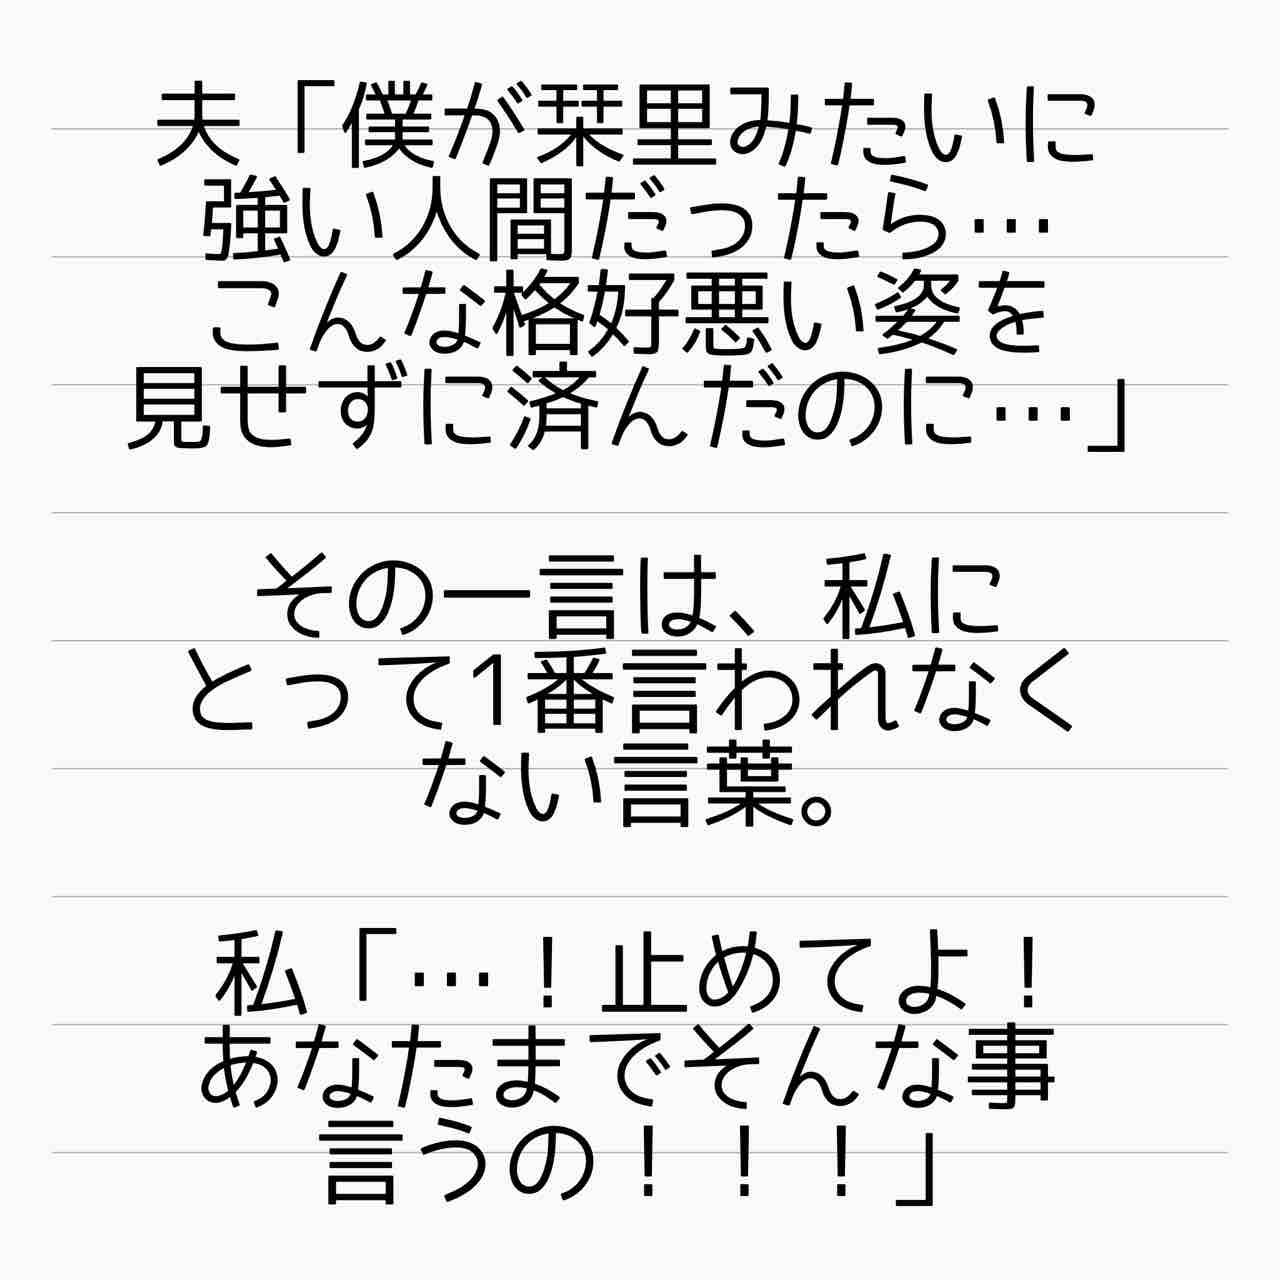 夫「僕が栞里みたいに
強い人間だったら…
こんな格好悪い姿を
見せずに済んだのに…」
その一言は、私に
とって1番言われなく
ない言葉。
私「…！止めてよ！
あなたまでそんな事
言うの！！！」